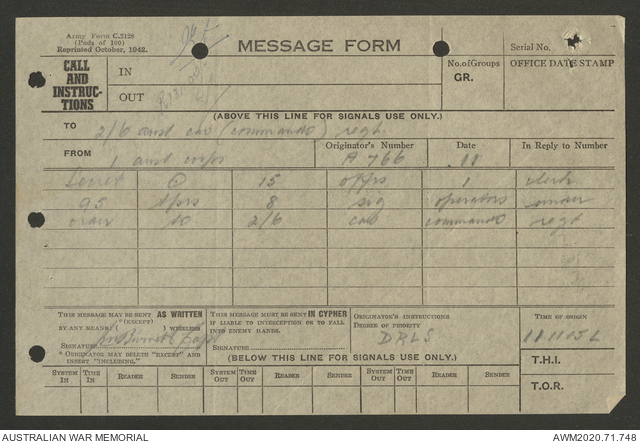 Army Form C.2128
(Pads of 100)
Reprinted October, 1942.
MESSAGE FORM
Serial No.
CALL AND INSTRUC-TIONS
IN
OUT
No. of Groups
GR.
OFFICE DATE STAMP
(ABOVE THIS LINE FOR SIGNALS USE ONLY.)
TO 2/6 aust cav (commando) regt
FROM 1 aust corps
Originator's Number A 766
Date 11
In Reply to Number
secret 15 offrs 1 clerk
95 8 sig operators under
order 10 2/6 cav commando regt
THIS MESSAGE MAY BE SENT AS WRITTEN
(EXCEPT)
BY ANY MEANS ( ) WIRELESS
SIGNATURE
* ORIGINATOR MAY DELETE "EXCEPT" AND INSERT "INCLUDING."
THIS MESSAGE MUST BE SENT IN CYPHER
IF LIABLE TO INTERCEPTION OR TO FALL INTO ENEMY HANDS.
SIGNATURE
ORIGINATOR'S INSTRUCTIONS
DEGREE OF PRIORITY
DRLS
TIME OF ORIGIN
111115L
(BELOW THIS LINE FOR SIGNALS USE ONLY.)
T.H.I.
T.O.R.
SYSTEM IN TIME IN READER SENDER SYSTEM OUT TIME OUT READER SENDER SYSTEM OUT TIME OUT READER SENDER
AUSTRALIAN WAR MEMORIAL
AWM2020.71.748